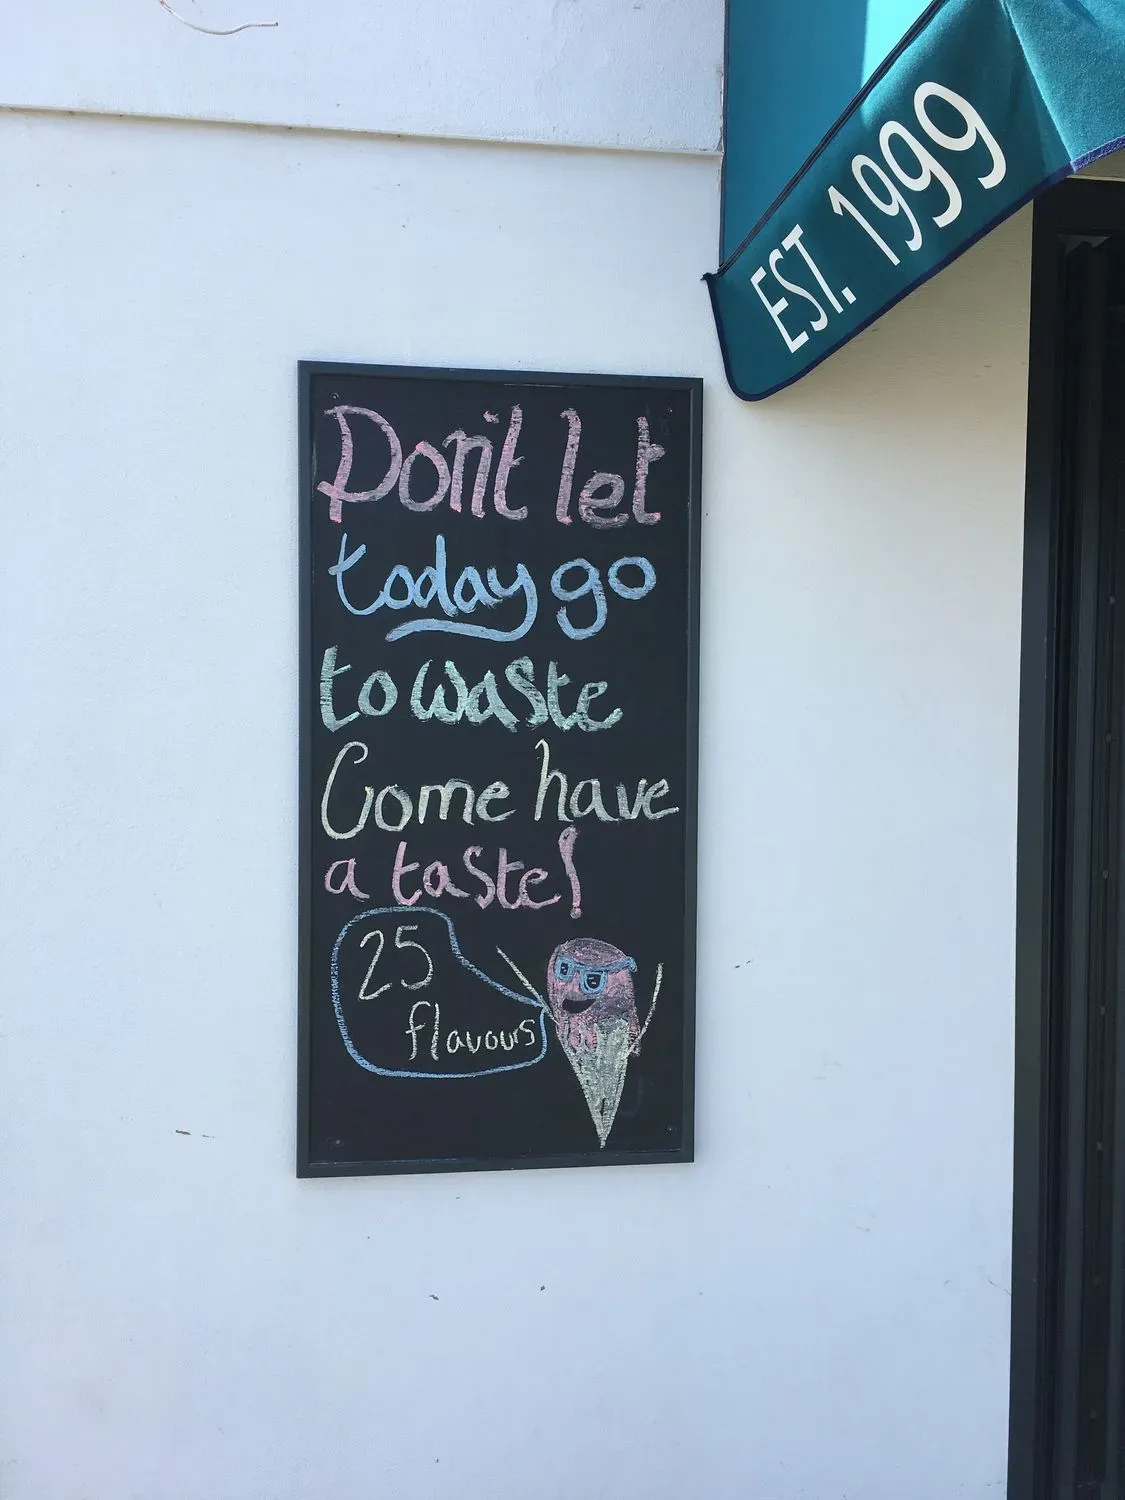 EST. 1999
Don't let
today go
to waste
Come have
a taste!
25
flavours